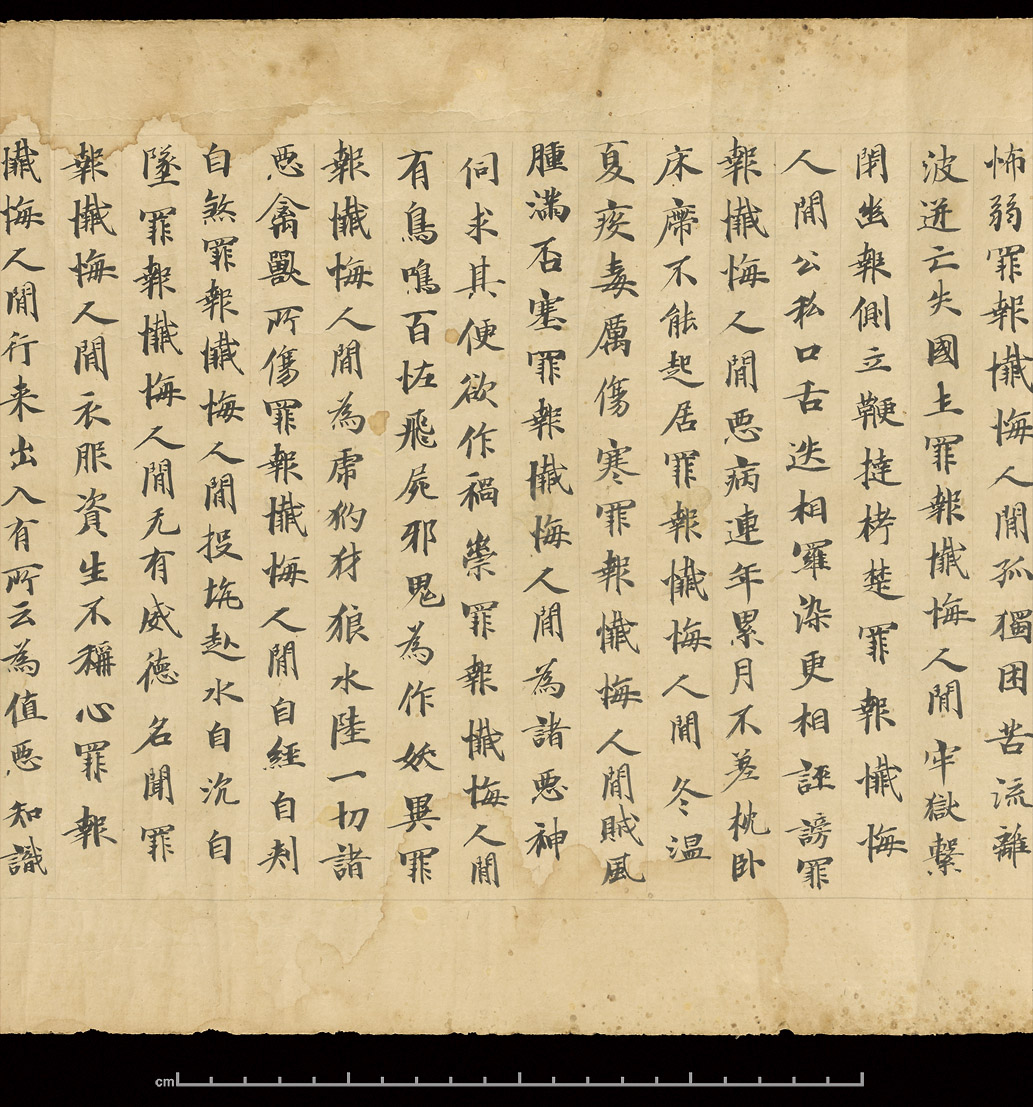 怖弱罪報懺悔人間孤獨困苦流離
波迸亡失國土罪報懺悔人間牢獄繫
閇幽報側立鞭撻栲楚罪報懺悔
人間公私口舌迭相羅染更相誣謗罪
報懺悔人間惡病連年累月不差枕卧
床席不能起居罪報懺悔人間冬温
夏疫毒厲傷寒罪報懺悔人間賊風
腫滿否塞罪報懺悔人間為諸惡神
伺求其便欲作禍祟罪報懺悔人間
有鳥鳴百恠飛屍邪鬼為作妖異罪
報懺悔人間為虎豹犲狼水陸一切諸
惡禽獸所傷罪報懺悔人間自經自刾
自煞罪報懺悔人間投坑赴水自沉自
墜罪報懺悔人間无有威德名聞罪
報懺悔人間衣服資生不稱心罪報
懺悔人間行来出入有所云為值惡知識